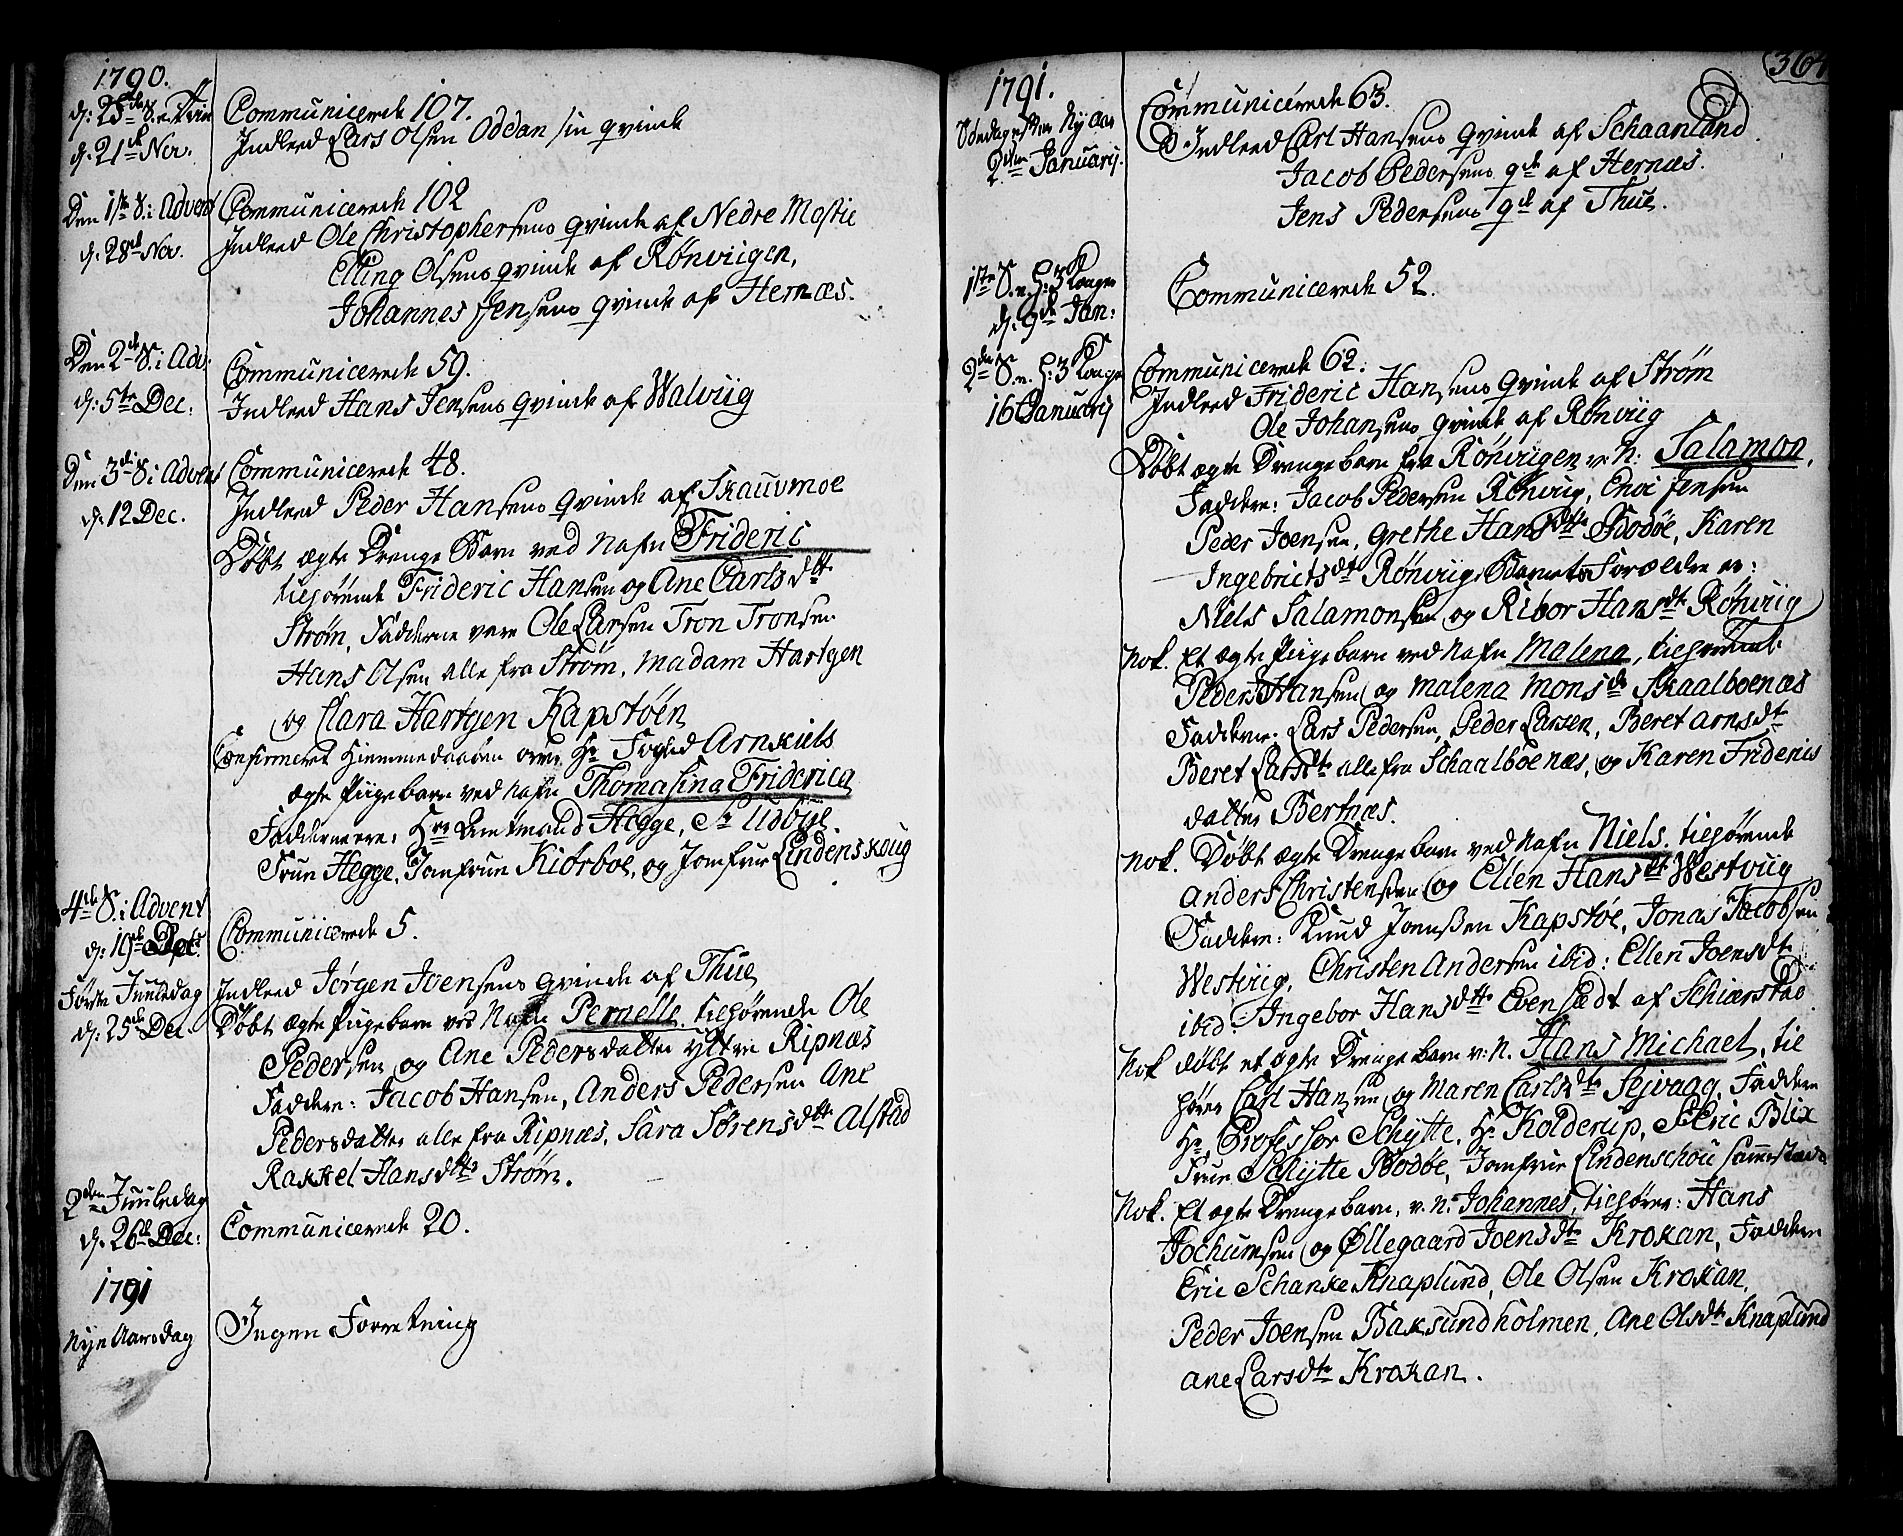 1790.
d: 25de S. e. Trin
d. 21de Nov.
Communicerede 107.
Indleed Lars Olsen Oddan sin qvinde
Den 1ste S: i Advent
d. 28de Nov.
Communicerede 102
Indleed Ole Christophersens qvinde af Nedre Mostie
Elling Olsens qvinde af Rønviigen,
Johannes Jensens qvinde af Hernæs.
Den 2de S. i Adv:
d: 5te Dec:
Communicerede 59.
Indleed Hans Jensens qvinde af Walviig
Den 3die S: i Advent
d. 12 Dec.
Communicerede 48.
Indleed Peder Hansens qvinde af Skauvmoe
Døbt ægte Drenge Barn ved Nafn Frideric
tilhørende Frideric Hansen og Ane Carlsdtt
Strøm, Fadderne vare Ole Larsen Tron Tronsen
Hans Olsen alle fra Strøm, Madam Hartgen
og Clara Hartgen Kapstøen
Confirmeret Hiemmedaaben over Hr Foged Arnkiels
ægte Piigebarn ved Nafn Thomasina Friderica
Fadderne ere: Hr Amtmand Hegge, Sr Udbye.
Frue Hegge, Jomfrue Kiørboe, og Jomfrue Lindenskoug
4de S. i Advent
d. 19de Dec.
Communicerede 5.
Første Juuledag
d. 25de Dec
Indleed Jørgen Joensens qvinde af Thue
Døbt ægte Piigebarn ved Nafn Pernelle. tilhørende Ole
Pedersen og Ane Pedersdatter yttre Ripnæs
Faddere: Jacob Hansen, Anders Pedersen Ane
Pedersdatter alle fra Ripnæs, Sara Sørensdtt Alstad
Rakkel Hansdtt Strøm.
2den Juuledag
d. 26de Dec:
Communicerede 20.
1791
Nyt Aarsdag
Ingen Forretning
364
1791.
Sondag efter Nyaar
2den Januarij.
Communicerede 63.
Indleed Carl Hansens Qvinde af Schaanland
Jacob Pedersens qde af Hernæs.
Jens Pedersens qde af Thue.
1ste S. e. H: 3 Konger
d. 9de Jan:
Communicerede 52.
2den S. e. H: 3 Konger
16 Januarij
Communicerede 62.
Indleed Frideric Hansens Qvinde af Strøm
Ole Johansens qvinde af Rønviig
Døbt ægte Drengebarn fra Rønvigen v: N: Salamon,
Faddere: Jacob Pedersen Rønviig, Enoc Jensen
Peder Joensen, Grethe Hansdtt Bodøe, Karen
Ingebrictsdt Rønviig. Barnets Forældre er:
Niels Salamonsen og Ribor Hansdt Rønviig
Nok. Et ægte Piigebarn ved Nafn Malena, tilhørende
Peder Hansen og Malena Monsdr Skaalboenæs
Faddere: Lars Pedersen, Peder Larsen, Beret Arnsdt
Beret Larsdtr alle fra Schaalboenæs, og Karen Friderics
datter Bertnæs.
Nok. Døbt ægte Drengebarn ved Nafn Niels. tilhørende
Anders Christensen og Ellen Hansdt Westviig
Faddere: Knud Joensen Kapstøe, Jonas Jacobsen
Westviig, Christen Andersen ibid: Ellen Joensdt
ibid. Ingebor Hansdtt Evensædt af Schiærstad
Nok døbt et ægte Drengebarn v: N. Hans Michael, til
hører Carl Hansen og Maren Carlsdtr Sejvaag, Faddere
Hr Professor Schytte, Hr Kolderup, S Eric Blix
Frue Schytte Bodøe, Jomfrue Lindenschou sammestæds
Nok. Et ægte Drengebarn, v. N. Johannes, tilhører: Hans
Jochumsen og Øllegaard Joensdtr Krokan, Faddere
Eric Schanke Knaplund, Ole Olsen Krokan,
Peder Joensen Baksundholmen, Ane Olsdtr Knaplund
Ane Larsdtr Krokan.